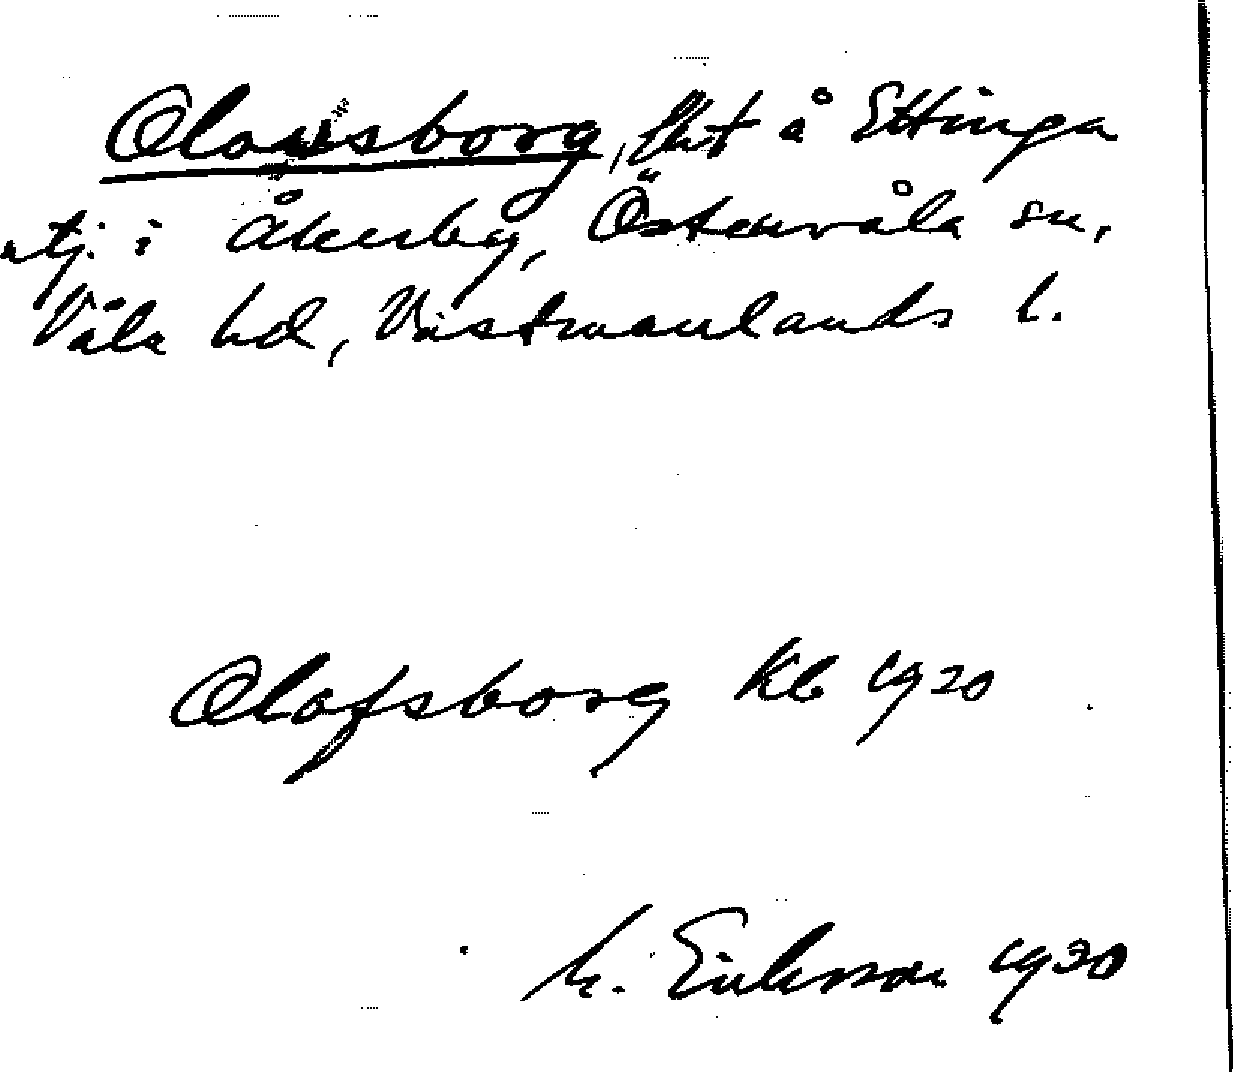 Olovsborg, lht å Ettinga
utj. i Åkerby, Östervåla sn,
Våla hd, Västmanlands l.
Olofsborg Kb 1920
M. Eriksson 1930